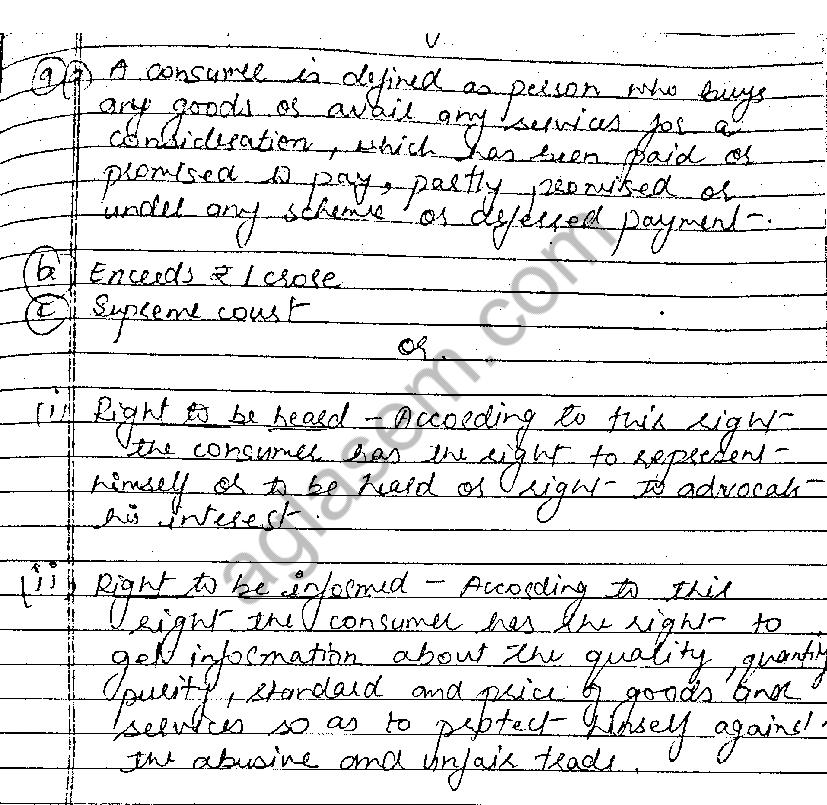 9 a) A consumer is defined as person who buys
any goods or avail any services for a
consideration, which has been paid or
promised to pay, partly promised or
under any scheme of deferred payment.
b Exceeds ₹ 1 crore
c Supreme court
or.
(i) Right to be heard - According to this right
the consumer has the right to represent
himself or to be heard or right to advocate
his interest.
(ii) Right to be informed - According to this
right the consumer has the right to
get information about the quality, quantity
purity, standard and price of goods and
services so as to protect himself against
the abusive and unfair trade.
aglasem.com